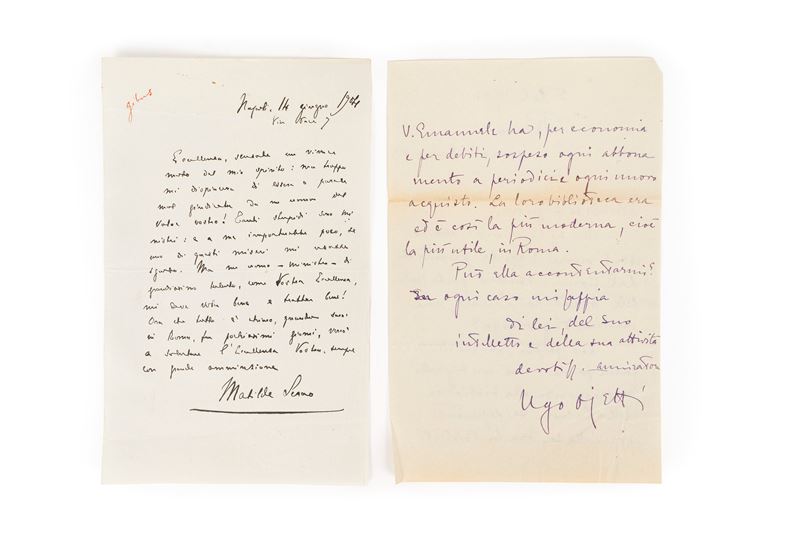 Napoli. 14 giugno
Via
Eccellenza, scusate un vivace
moto del mio spirito: non troppo
mi dispiaceva di essere a parole
mal giudicata da un uomo del
valor vostro! Tanti stupidi sono
e a me importerebbe poco, se
uno di questi miseri mi
Ma un uomo - ministro - di
grandissimo talento, come Vostra Eccellenza,
mi deve voler bene e trattar bene!
Ora che tutto è chiaro, quando sarò
in Roma, fra pochissimi giorni, verrò
a salutare l'Eccellenza Vostra, sempre
con grande ammirazione
Matilde Serao
V. Emanuele ha, per economia
e per debiti, sospeso ogni abbona
mento a periodici e ogni nuovo
acquisto. La loro biblioteca era
ed è così la più moderna, cioè
la più utile, in Roma.
Può ella accontentarmi?
In ogni caso mi faccia
di lei, del suo
intelletto e della sua attività
devotiss. ammiratore
Ugo Ojetti